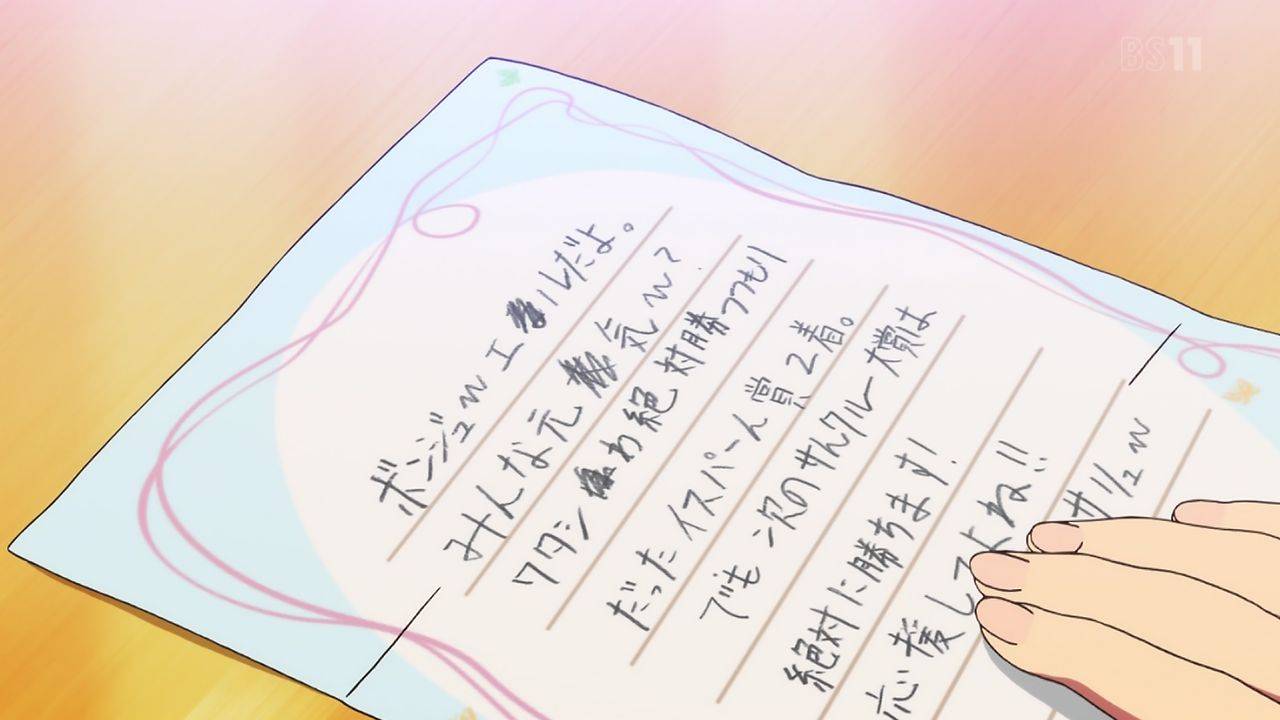 BS11
ボンジューw エールだよ。
みんな元気w?
ワタシわ絶対勝つつもり
だったイスパーん賞2着。
でもン次のサんクルー大賞は
絶対に勝ちます!
応援してよね!!
サリューw